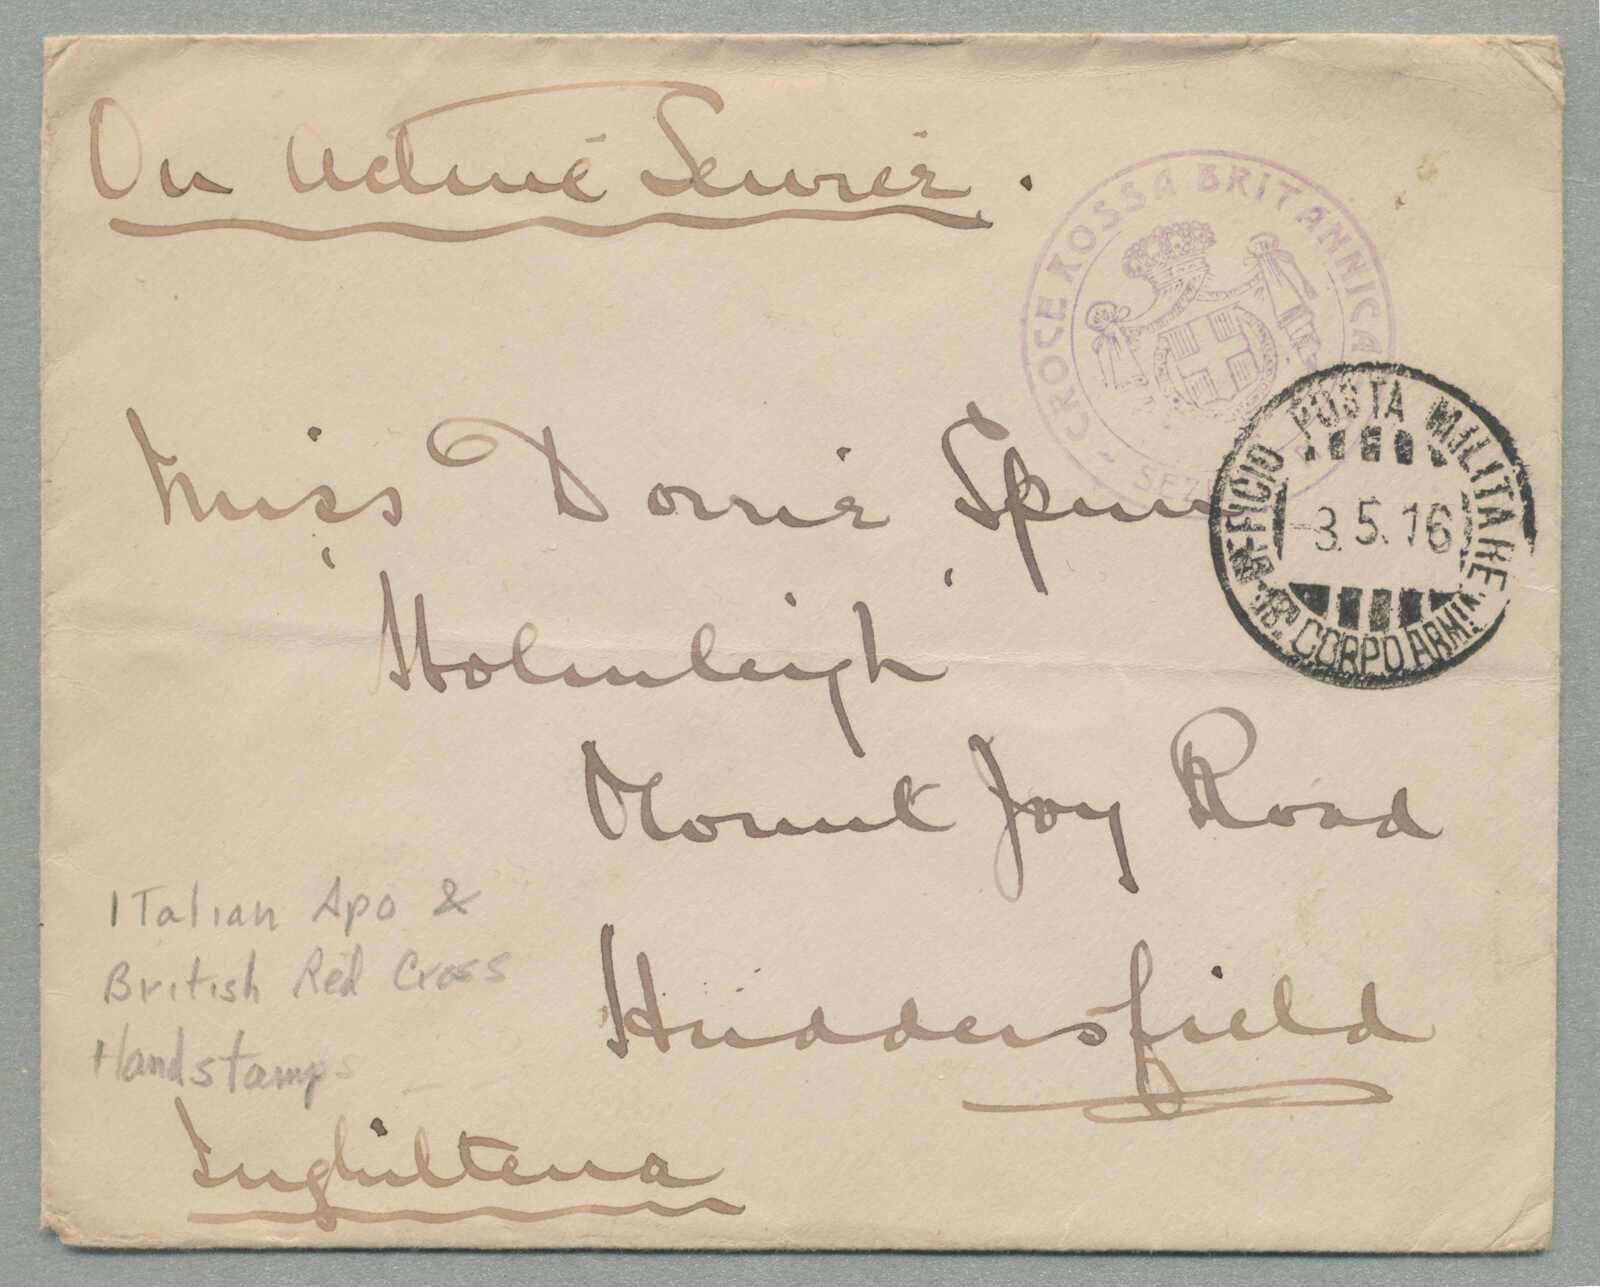 On Active Service.
CROCE ROSSA BRITANNICA
UFFICIO POSTA MILITARE
3.5.16
CORPO ARM
Miss Dorrie
Holmleigh
Mount Joy Road
Huddersfield
Italian Apo &
British Red Cross
Handstamps
Inghilterra